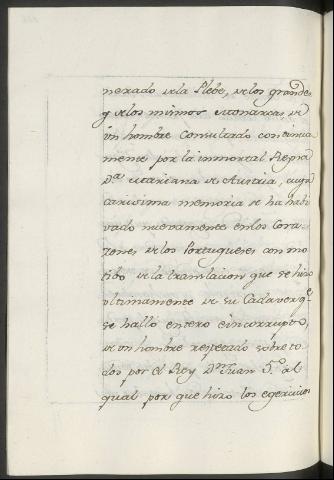 nerado de la Plebe, de los grandes
y de los mismos Monarcas, de
ún hombre Consultado continua
mente por la inmortal Reyna
D.ª Mariana de Austria, cuya
carissima memoria se ha habi
vado nuevamente en los Cora
zones de los Portugueses con mo
tibo de la translacion que se hizo
ultimamente de su Cadaver q.e
se halló entero é incorrupto,
de un hombre respetado sobre to
dos por el Rey D.n Juan 5.º al
qual por que hizo los egercicios